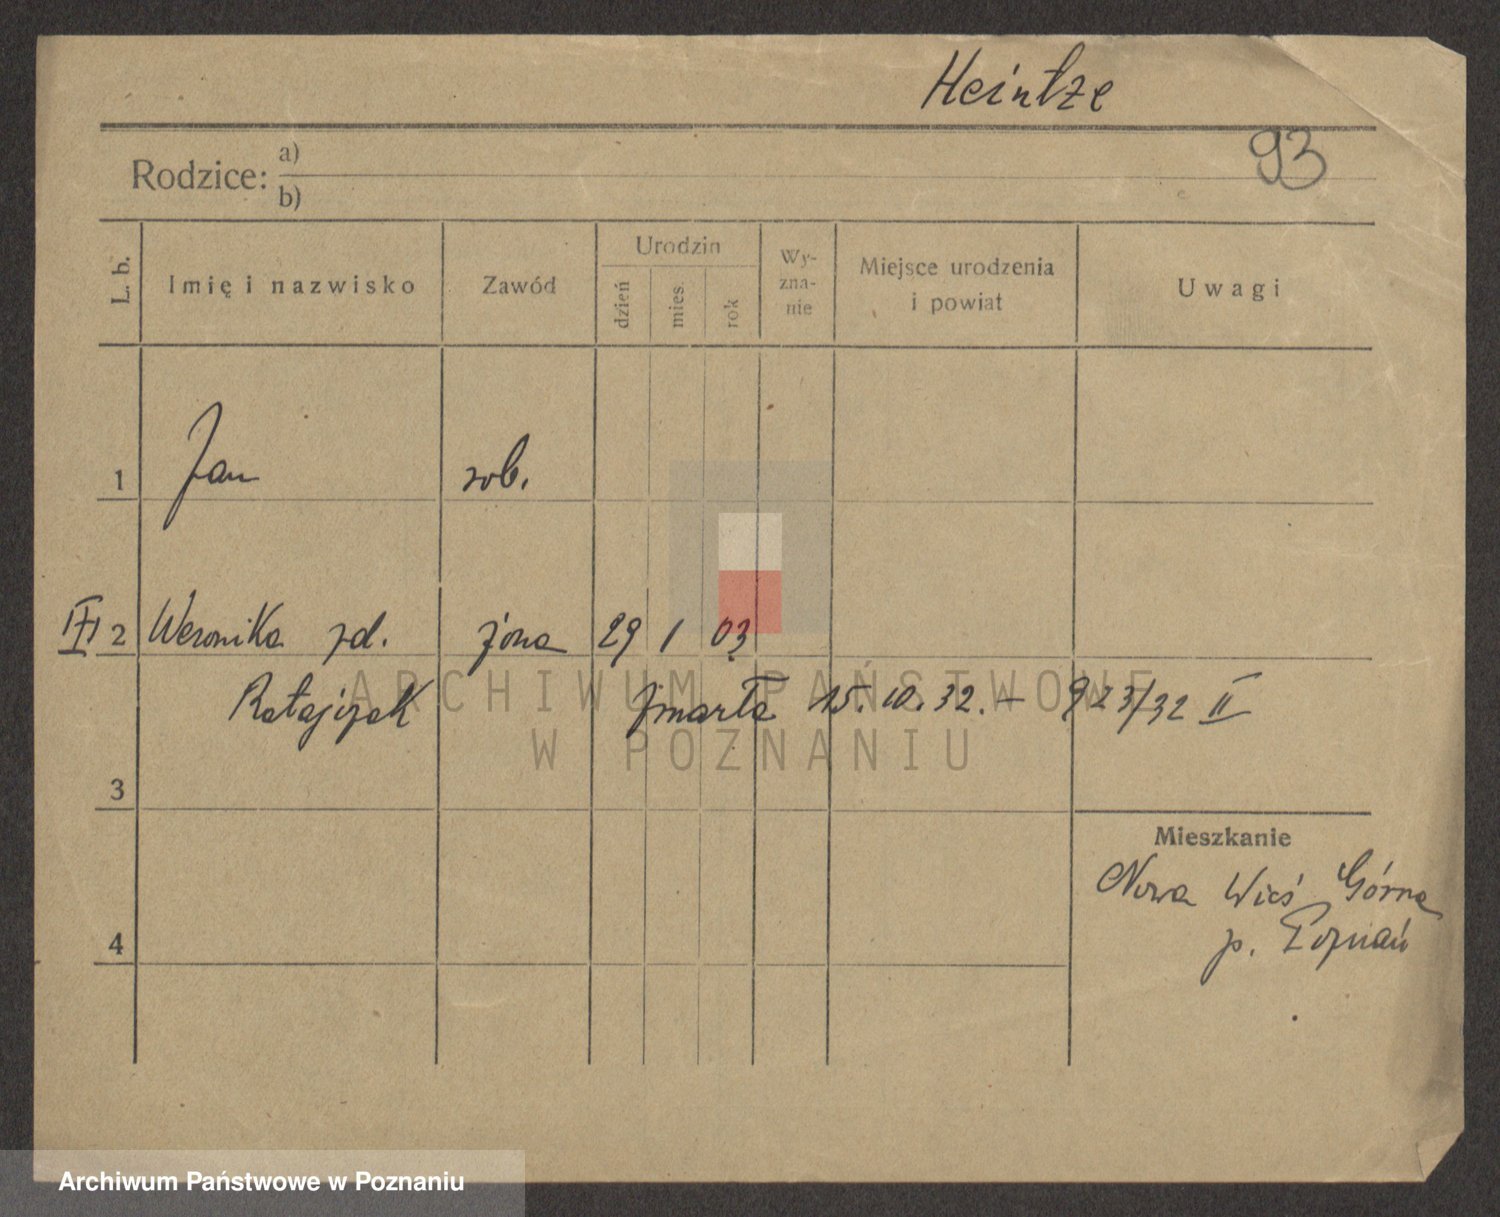 Heintze
93
Rodzice: a)
b)
L. b.
Imię i nazwisko
Zawód
Urodzin
dzień
mies.
rok
Wy-
zna-
nie
Miejsce urodzenia
i powiat
Uwagi
1 Jan rob.
2 Weronika zd. żona 29 1 03
Ratajczak zmarła 15.10.32. – 923/32 II
3
ARCHIWUM PAŃSTWOWE
W POZNANIU
Mieszkanie
Nowa Wieś Górna
p. Poznań
4
Archiwum Państwowe w Poznaniu